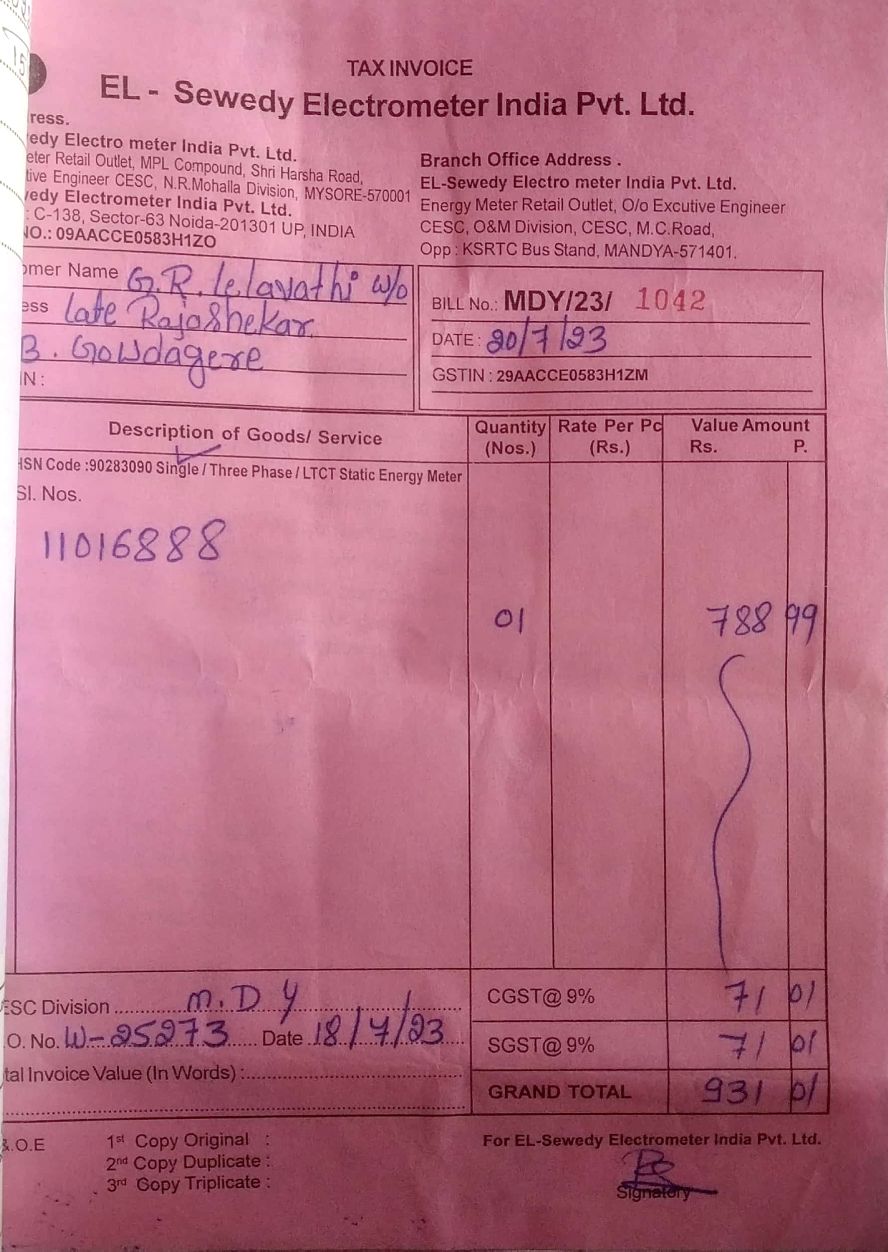 TAX INVOICE
EL - Sewedy Electrometer India Pvt. Ltd.
ress.
edy Electro meter India Pvt. Ltd.
eter Retail Outlet, MPL Compound, Shri Harsha Road,
tive Engineer CESC, N.R.Mohalla Division, MYSORE-570001
edy Electrometer India Pvt. Ltd.
: C-138, Sector-63 Noida-201301 UP, INDIA
NO.: 09AACCE0583H1ZO
Branch Office Address .
EL-Sewedy Electro meter India Pvt. Ltd.
Energy Meter Retail Outlet, O/o Excutive Engineer
CESC, O&M Division, CESC, M.C.Road,
Opp : KSRTC Bus Stand, MANDYA-571401.
omer Name G.R. Lelavathi w/o
ess late Rajashekar
B. Gowdagere
IN :
BILL No.: MDY/23/ 1042
DATE : 20/7/23
GSTIN : 29AACCE0583H1ZM
Description of Goods/ Service
Quantity (Nos.)
Rate Per Pc (Rs.)
Value Amount
Rs. P.
HSN Code :90283090 Single / Three Phase / LTCT Static Energy Meter
Sl. Nos.
11016888
01 788 99
ESC Division ........ M.D Y ........
.O. No. W-25273 ..... Date 18/7/23
tal Invoice Value (In Words) :........
CGST@ 9% 71 01
SGST@ 9% 71 01
GRAND TOTAL 931 01
&.O.E
1st Copy Original :
2nd Copy Duplicate :
3rd Gopy Triplicate :
For EL-Sewedy Electrometer India Pvt. Ltd.
Signatory